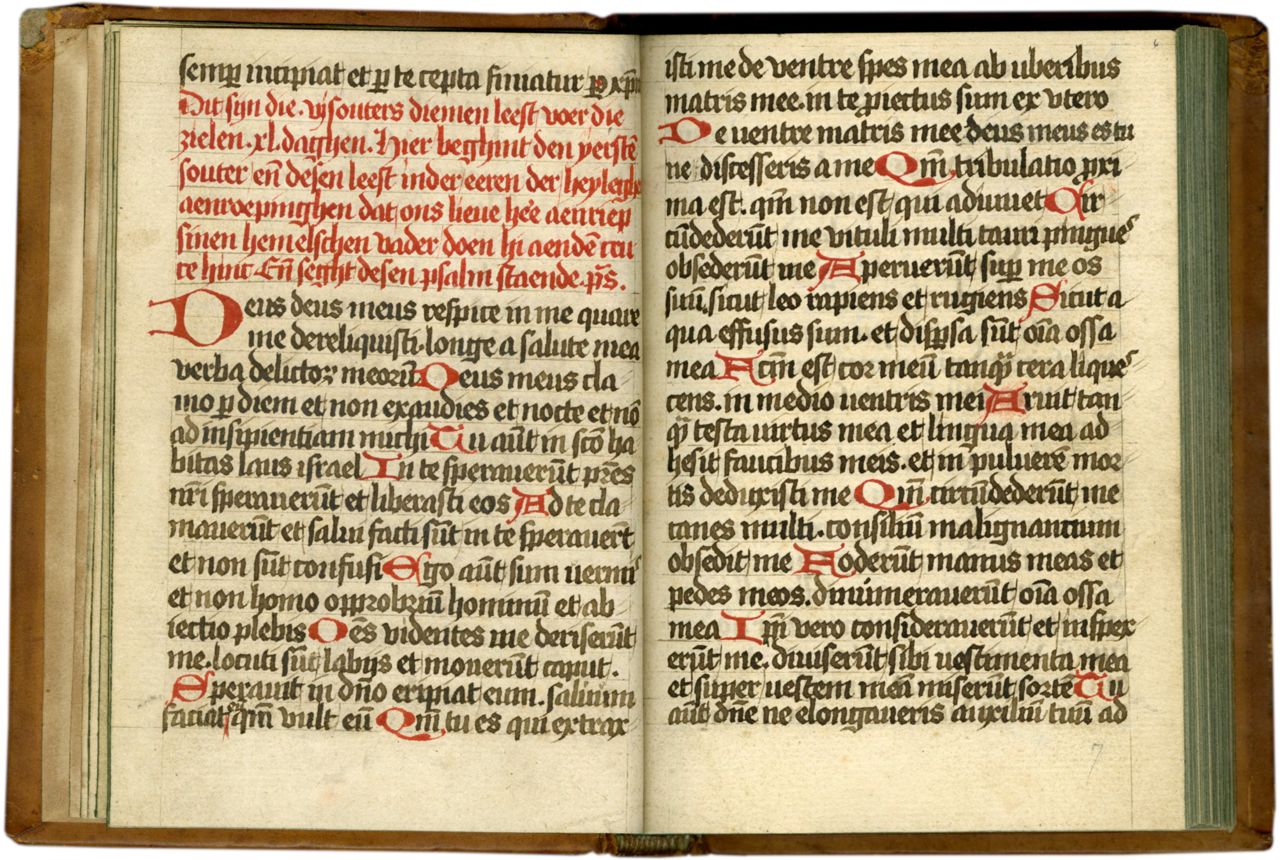 semp incipiat et p te cepta finiatur p xpm
Dit sijn die .vij. souters diemen leest voer die
zielen .xl. daghen. Hier beghint den yersten
souter en̄ desen leest inder eeren der heyligher
aenroepinghen dat ons lieue hēe aenriep
sinen hemelschen vader doen hi aendē cru
ce hinc. En̄ seght desen psalm staende. ps̄.
Deus deus meus respice in me quare
me dereliquisti. longe a salute mea
verba delictoꝝ meoꝝ Deus meus cla
mo p diem et non exaudies et nocte et nō
ad insipientiam michi Tu aūt in scō ha
bitas laus israel In te sperauerūt prēs
nr̄i sperauerūt et liberasti eos Ad te cla
mauerūt et salui facti sūt in te sperauert̄
et non sūt confusi Ego aūt sum uermis
et non homo opprobriū hominū et ab
iectio plebis Oēs videntes me deriserūt
me. locuti sūt labijs et mouerūt caput.
Sperauit in dn̄o eripiat eum. saluum
faciat eū qm̄ vult eū Qm̄ tu es qui extrax
6
isti me de ventre spes mea ab uberibus
matris mee. in te proiectus sum ex vtero
De uentre matris mee deus meus es tu
ne discesseris a me Qm̄ tribulatio proxi
ma est. qm̄ non est qui adiuuet Cir
cūdederūt me vituli multi tauri pingues
obsederūt me Aperuerūt sup me os
suū. sicut leo rapiens et rugiens Sicut a
qua effusus sum. et dispsa sūt oīa ossa
mea Factm̄ est cor meū tanqȝ cera lique
cens. in medio uentris mei Aruit tan
qȝ testa uirtus mea et lingua mea ad
hesit faucibus meis. et in puluerē mor
tis deduxisti me Qm̄ circūdederūt me
canes multi. consiliū malignantium
obsedit me Foderūt manus meas et
pedes meos. dinumerauerūt oīa ossa
mea Ipsi vero considerauerūt et inspex
erūt me. diuiserūt sibi uestimenta mea
et super uestem meā miserūt sortē Tu
aūt dn̄e ne elongaueris auxiliū tuū ad
7